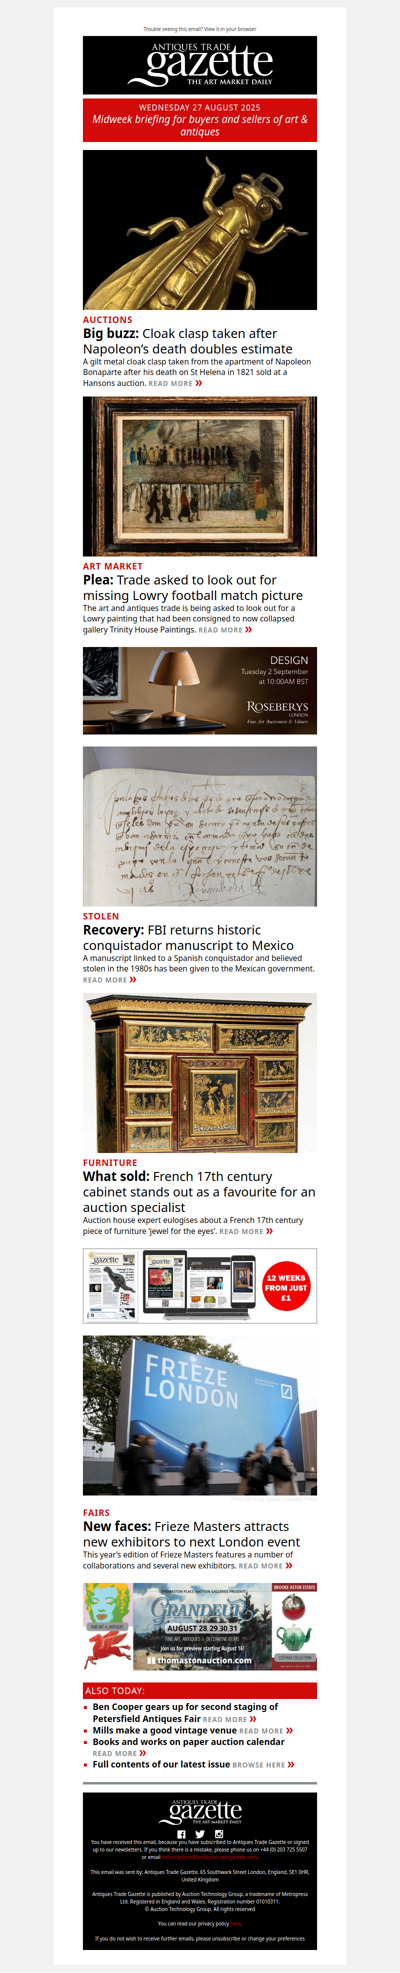 Trouble seeing this email? View it in your browser
ANTIQUES TRADE
gazette
THE ART MARKET DAILY
WEDNESDAY 27 AUGUST 2025
Midweek briefing for buyers and sellers of art &
antiques
AUCTIONS
Big buzz: Cloak clasp taken after
Napoleon's death doubles estimate
A gilt metal cloak clasp taken from the apartment of Napoleon
Bonaparte after his death on St Helena in 1821 sold at a
Hansons auction. READ MORE »
ART MARKET
Plea: Trade asked to look out for
missing Lowry football match picture
The art and antiques trade is being asked to look out for a
Lowry painting that had been consigned to now collapsed
gallery Trinity House Paintings. READ MORE »
DESIGN
Tuesday 2 September
at 10:00AM BST
ROSEBERYS
LONDON
Fine Art Auctioneers & Valuers
STOLEN
Recovery: FBI returns historic
conquistador manuscript to Mexico
A manuscript linked to a Spanish conquistador and believed
stolen in the 1980s has been given to the Mexican government.
READ MORE »
FURNITURE
What sold: French 17th century
cabinet stands out as a favourite for an
auction specialist
Auction house expert eulogises about a French 17th century
piece of furniture 'jewel for the eyes'. READ MORE »
gazette
12 WEEKS
FROM JUST
£1
FRIEZE
LONDON
FAIRS
New faces: Frieze Masters attracts
new exhibitors to next London event
This year's edition of Frieze Masters features a number of
collaborations and several new exhibitors. READ MORE »
THOMASTON PLACE AUCTION GALLERIES PRESENTS
GRANDEUR
AUGUST 28 29 30 31
FINE ART, ANTIQUES & DECORATIVE ITEMS
Join us for preview starting August 16!
thomastonauction.com
BROOKE ASTOR ESTATE
ALSO TODAY:
Ben Cooper gears up for second staging of
Petersfield Antiques Fair READ MORE »
Mills make a good vintage venue READ MORE »
Books and works on paper auction calendar
READ MORE »
Full contents of our latest issue BROWSE HERE »
ANTIQUES TRADE
gazette
THE ART MARKET DAILY
You have received this email, because you have subscribed to Antiques Trade Gazette or signed
up to our newsletters. If you think there is a mistake, please phone us on +44 (0) 203 725 5507
or email subscriptions@antiquestradegazette.com.
This email was sent by: Antiques Trade Gazette, 65 Southwark Street London, England, SE1 0HR,
United Kingdom
Antiques Trade Gazette is published by Auction Technology Group, a tradename of Metropress
Ltd. Registered in England and Wales. Registration number 01010311.
© Auction Technology Group. All rights reserved
You can read our privacy policy here.
If you do not wish to receive further emails, please unsubscribe or change your preferences